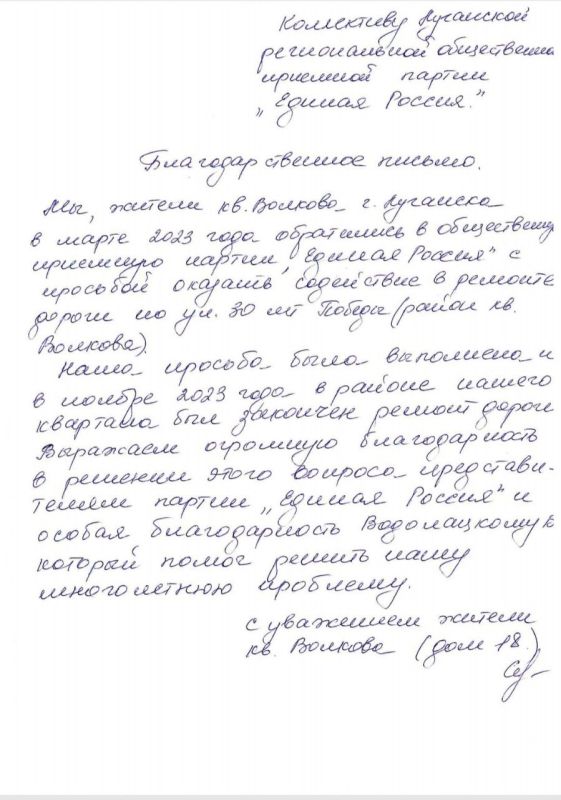 Коллективу Луганской
региональной общественно
приемной партии
"Единая Россия."
Благодарственное письмо.
Мы, жители кв. Волкова г. Луганска
в марте 2023 года обратились в общественную
приемную партии "Единая Россия" с
просьбой оказать содействие в ремонте
дороги по ул. 30 лет Победы (район кв.
Волкова).
Наша просьба была выполнена и
в ноябре 2023 года в районе нашего
квартала был закончен ремонт дороги
Выражаем огромную благодарность
в решении этого вопроса представи-
телям партии "Единая Россия" и
особая благодарность Водолацкому
который помог решить нашу
многолетнюю проблему.
с уважением жители
кв. Волкова (дом 18.)